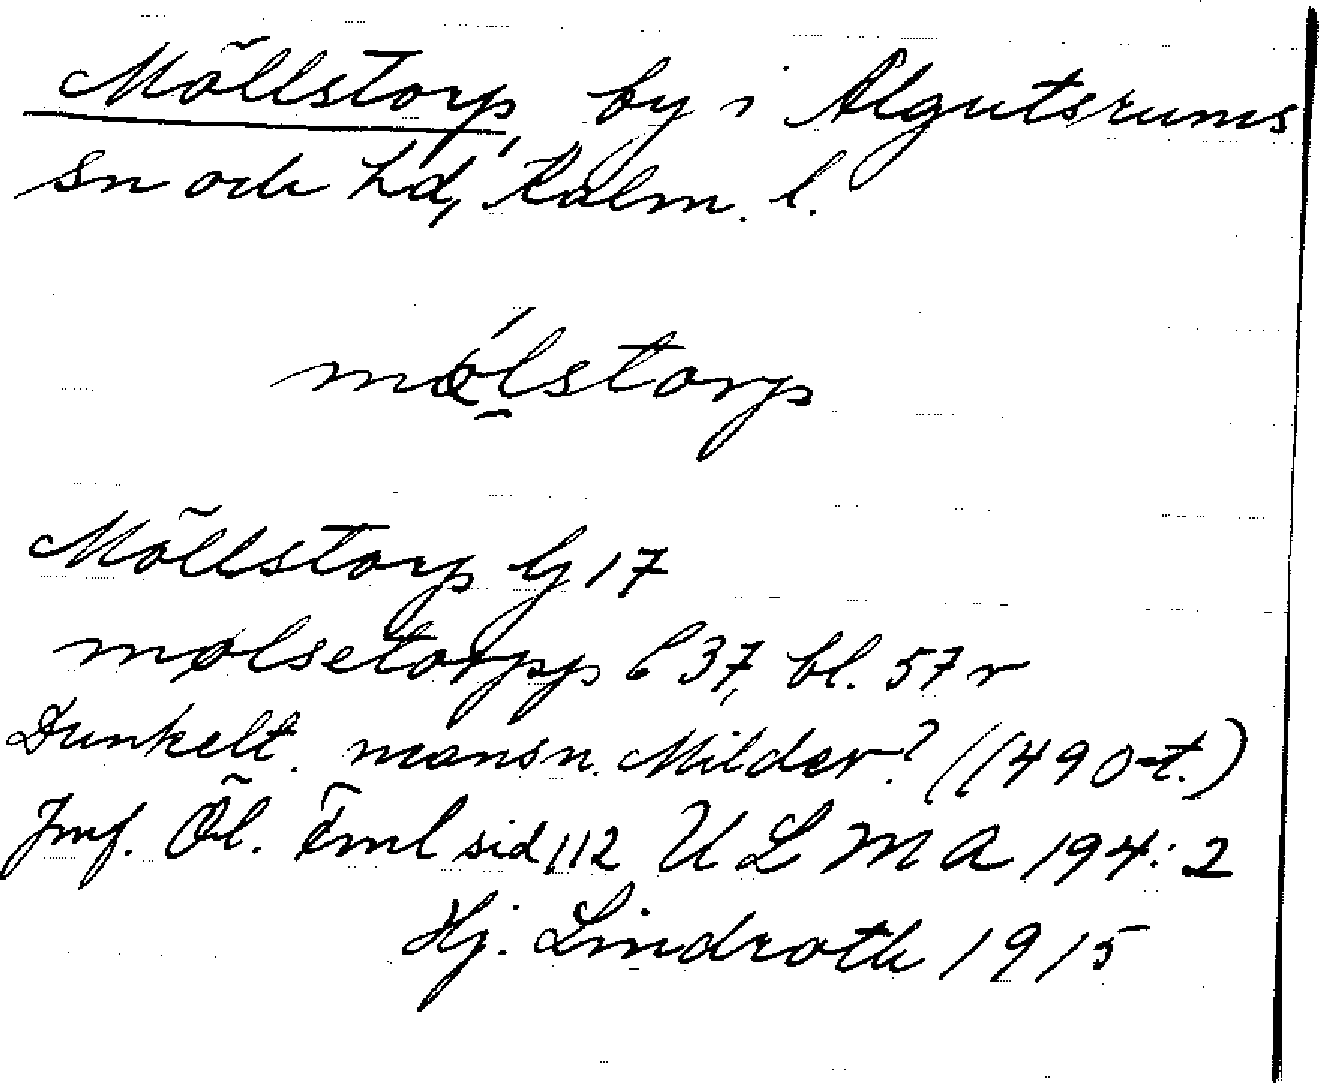 Möllstorp, by i Algutsrums
sn och hd, Kalm. l.
mölstorp
Möllstorp Gj 17
mølsetorpp 6 37, bl. 57 r
Dunkelt. mansn. Milder? (1490-t.)
Jmf. Öl. Fml sid 112 ULMA 194:2
Hj. Lindroth 1915